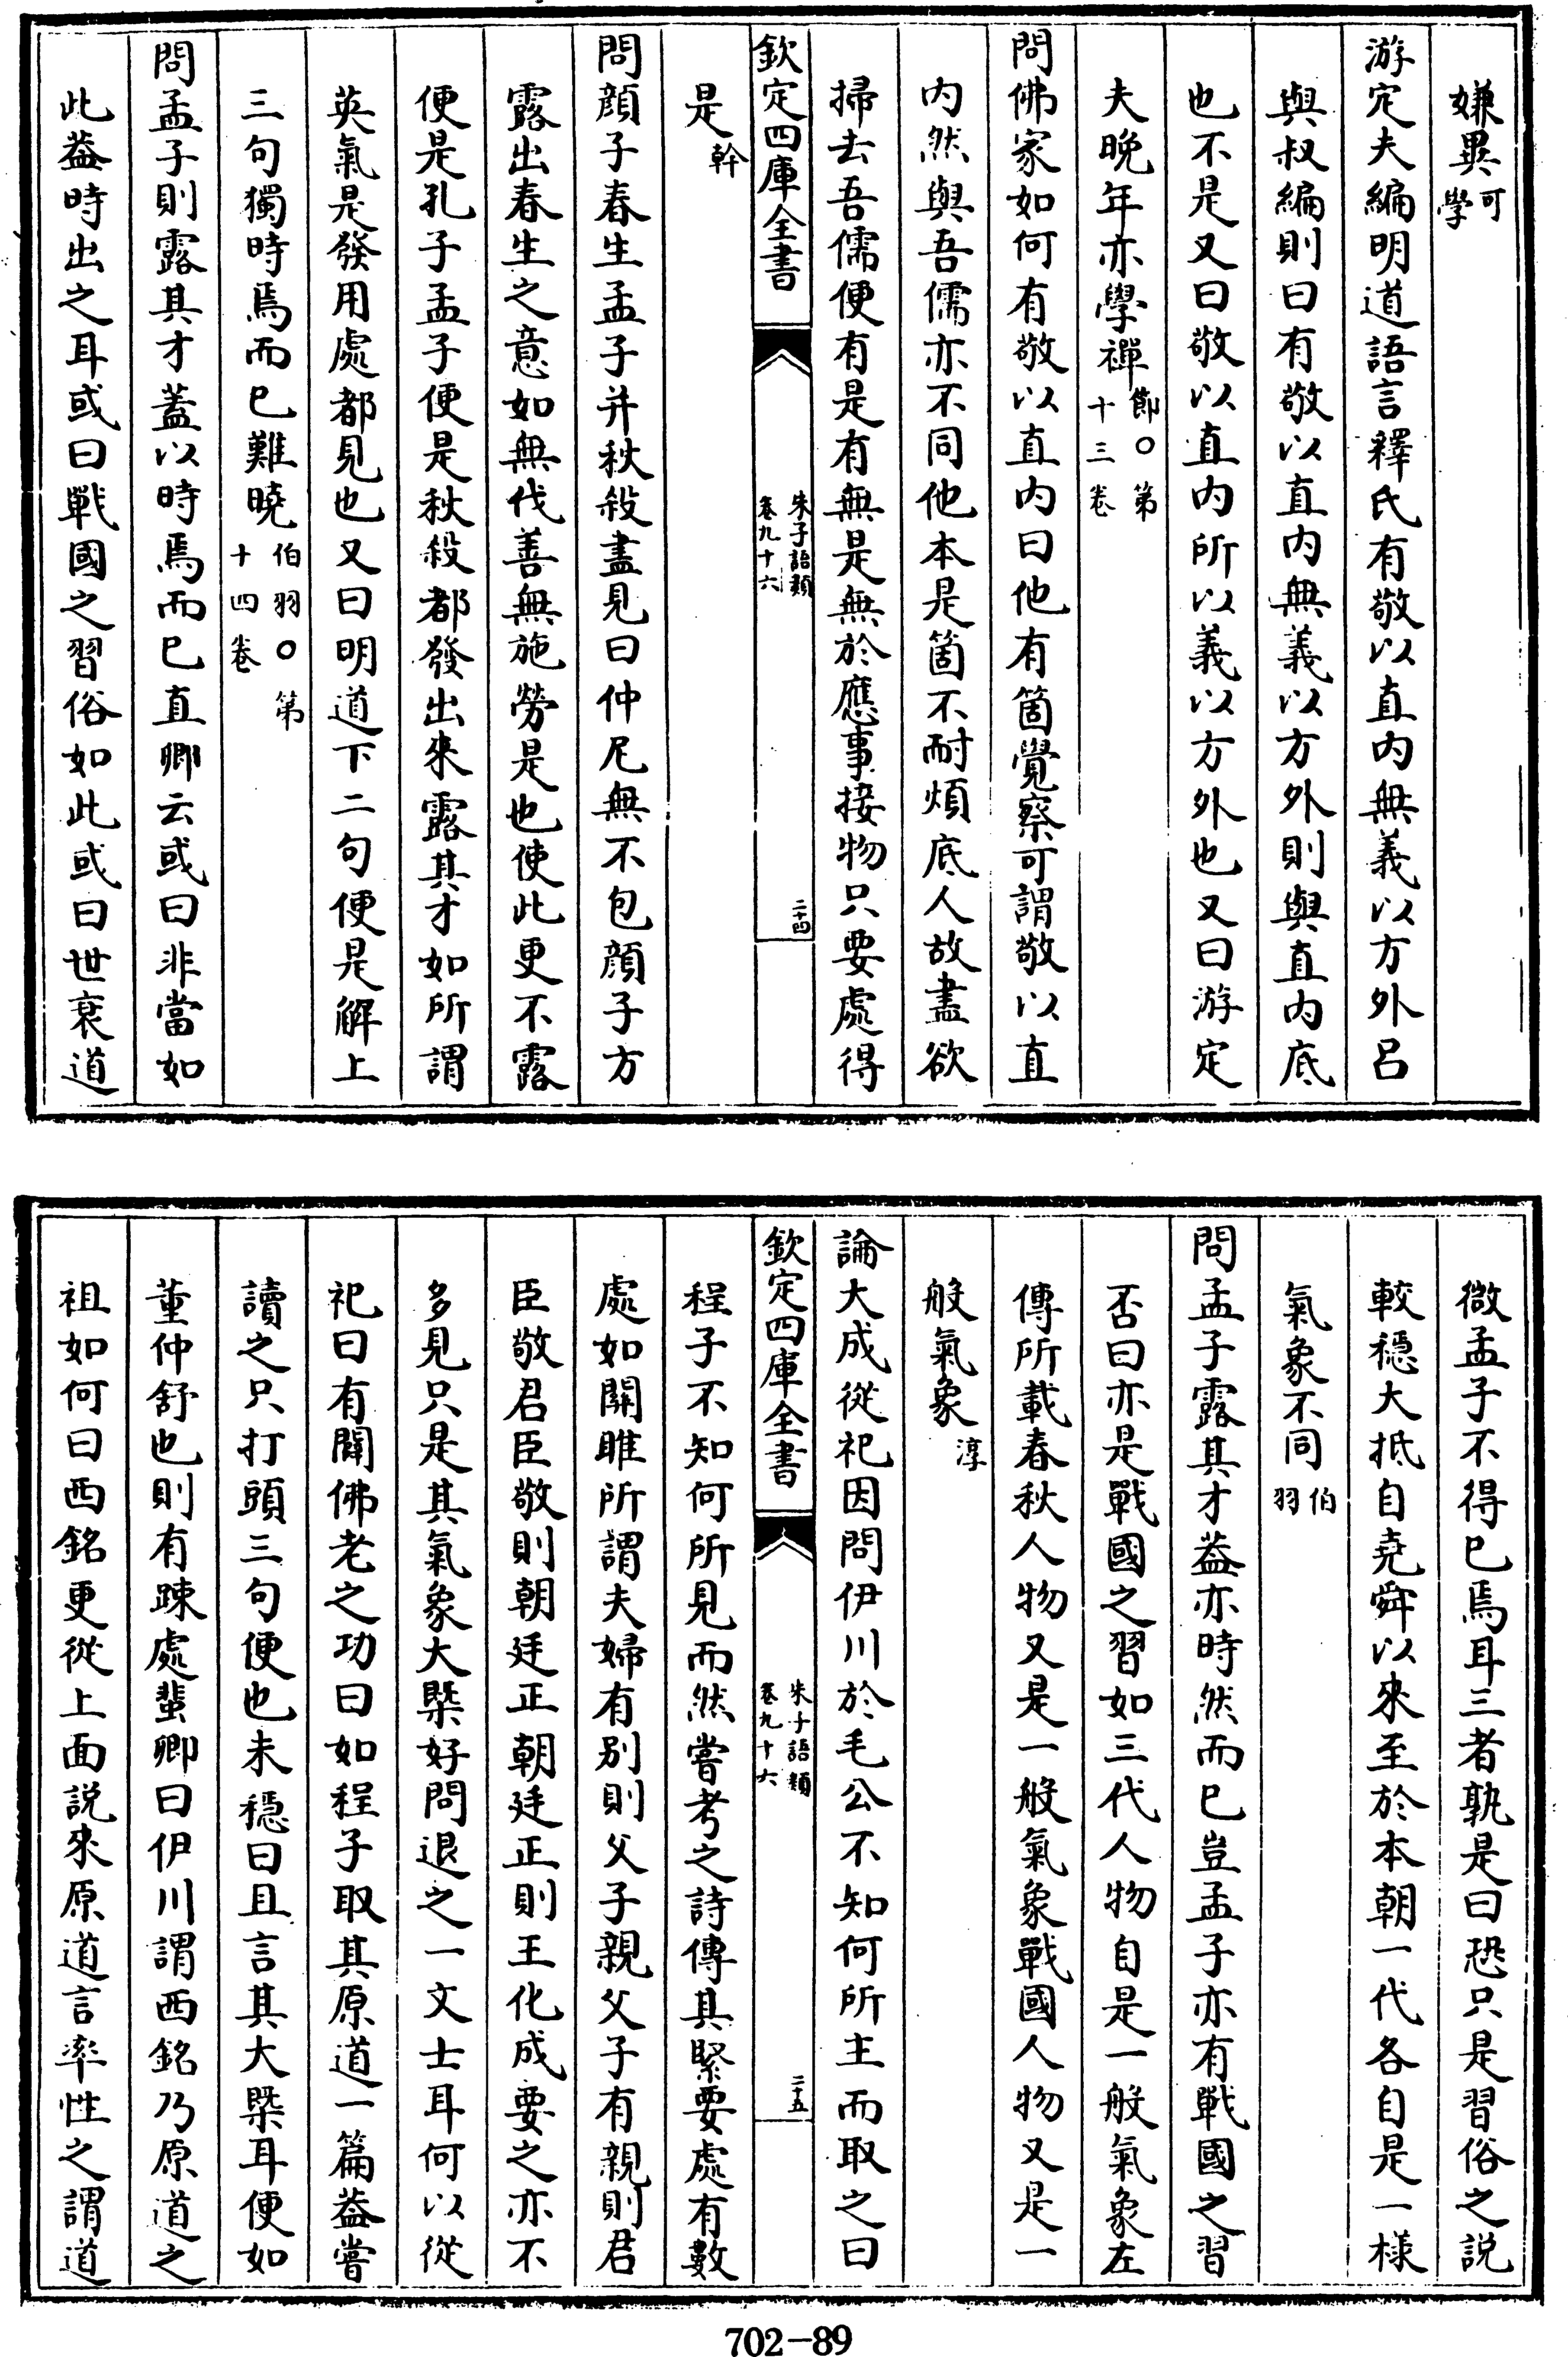 嫌異可學
游定夫編明道語言釋氏有敬以直内無義以方外吕
與叔編則曰有敬以直内無義以方外則與直内底
也不是又曰敬以直内所以義以方外也又曰游定
夫晚年亦學禪節○第十三卷
問佛家如何有敬以直内曰他有箇覺察可謂敬以直
内然與吾儒亦不同他本是箇不耐煩底人故盡欲
掃去吾儒便有是有無是無於應事接物只要處得
欽定四庫全書
朱子語類
卷九十六
二十四
是幹
問顔子春生孟子并秋殺盡見曰仲尼無不包顔子方
露出春生之意如無伐善無施勞是也使此更不露
便是孔子孟子便是秋殺都發出來露其才如所謂
英氣是發用處都見也又曰明道下二句便是解上
三句獨時焉而已難曉伯羽○第十四卷
問孟子則露其才蓋以時焉而已直卿云或曰非當如
此葢時出之耳或曰戰國之習俗如此或曰世衰道
微孟子不得已焉耳三者孰是曰恐只是習俗之説
較穩大抵自堯舜以來至於本朝一代各自是一様
氣象不同伯羽
問孟子露其才葢亦時然而已豈孟子亦有戰國之習
否曰亦是戰國之習如三代人物自是一般氣象左
傳所載春秋人物又是一般氣象戰國人物又是一
般氣象淳
論大成從祀因問伊川於毛公不知何所主而取之曰
欽定四庫全書
朱子語類
卷九十六
二十五
程子不知何所見而然嘗考之詩傳其緊要處有數
處如關雎所謂夫婦有别則父子親父子有親則君
臣敬君臣敬則朝廷正朝廷正則王化成要之亦不
多見只是其氣象大槩好問退之一文士耳何以從
祀曰有闢佛老之功曰如程子取其原道一篇葢嘗
讀之只打頭三句便也未穩曰且言其大槩耳便如
董仲舒也則有踈處蜚卿曰伊川謂西銘乃原道之
祖如何曰西銘更從上面説來原道言率性之謂道
702-89